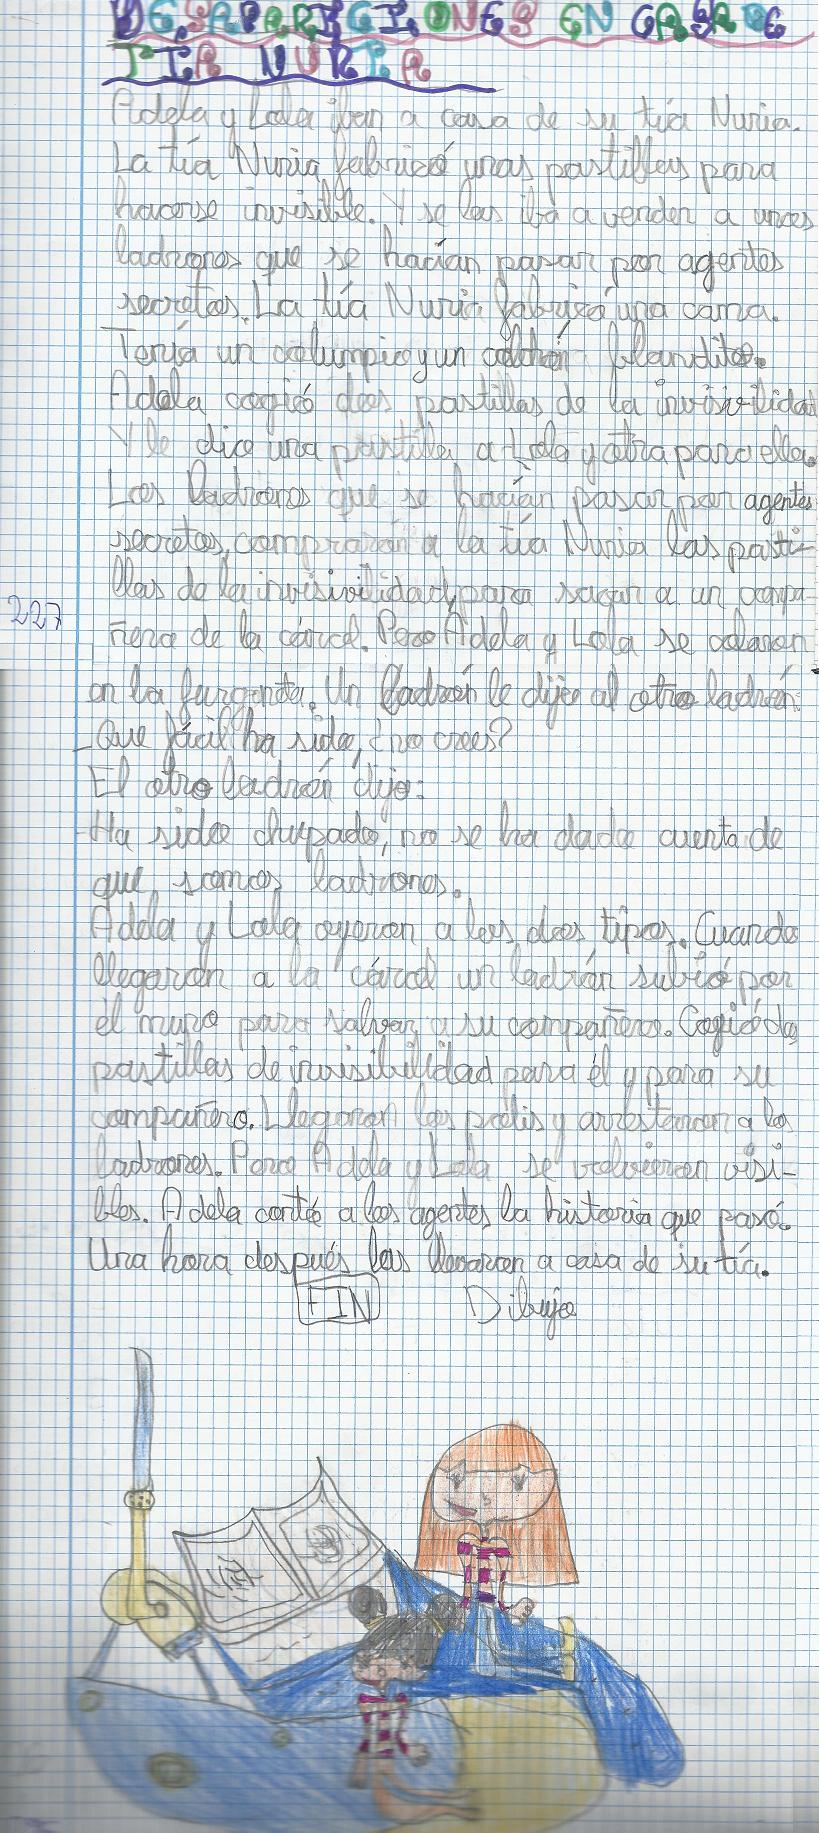 DESAPARICIONES EN CASA DE
TIA NURIA
Adela y Lola iban a casa de su tía Nuria.
La tía Nuria fabricó unas pastillas para
hacerse invisible. Y se las iba a vender a unos
ladrones que se hacían pasar por agentes
secretos. La tía Nuria fabricó una cama.
Tenía un columpio y un colchón blandito.
Adela cogió dos pastillas de la invisivilidad
Y le dice una pastilla a Lola y otra para ella.
Los ladrones que se hacían pasar por agentes
secretos, compraron a la tía Nuria las pasti-
llas de la invisivilidad, para sacar a un compa-
ñero de la cárcel. Pero Adela y Lola se colaron
en la furgoneta. Un ladrón le dijo al otro ladrón:
-Que fácil ha sido, ¿no crees?
El otro ladrón dijo:
-Ha sido chupado, no se ha dado cuenta de
que somos ladrones.
Adela y Lola oyeron a los dos tipos. Cuando
llegaron a la cárcel un ladrón subió por
el muro para salvar a su compañero. Cogió dos
pastillas de invisibilidad para él y para su
compañero. Llegaron los polis y arrestaron a los
ladrones. Pero Adela y Lola se volvieron visi-
bles. Adela contó a los agentes la historia que pasó.
Una hora después las llevaron a casa de su tía.
FIN Dibujo
227